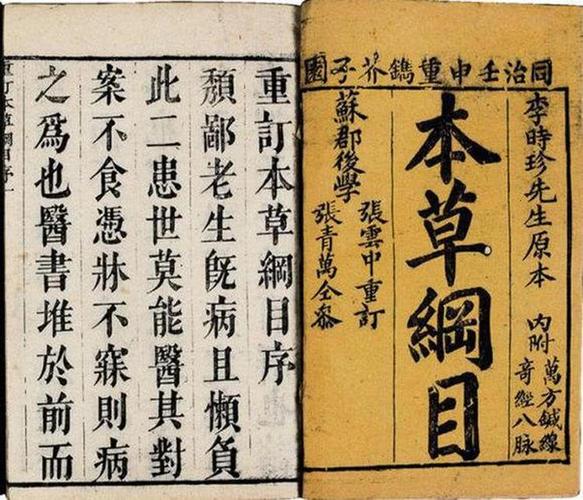 同治壬申重鐫芥子園
李時珍先生原本
內附
萬方鍼線
奇經八脉
本草綱目
蘇郡後學
張雲中重訂
張青萬仝叅
重訂本草綱目序
頽鄙老生旣病且懶負
此二患世莫能醫其對
案不食憑牀不寐則病
之爲也醫書堆於前而
重訂本草綱目序